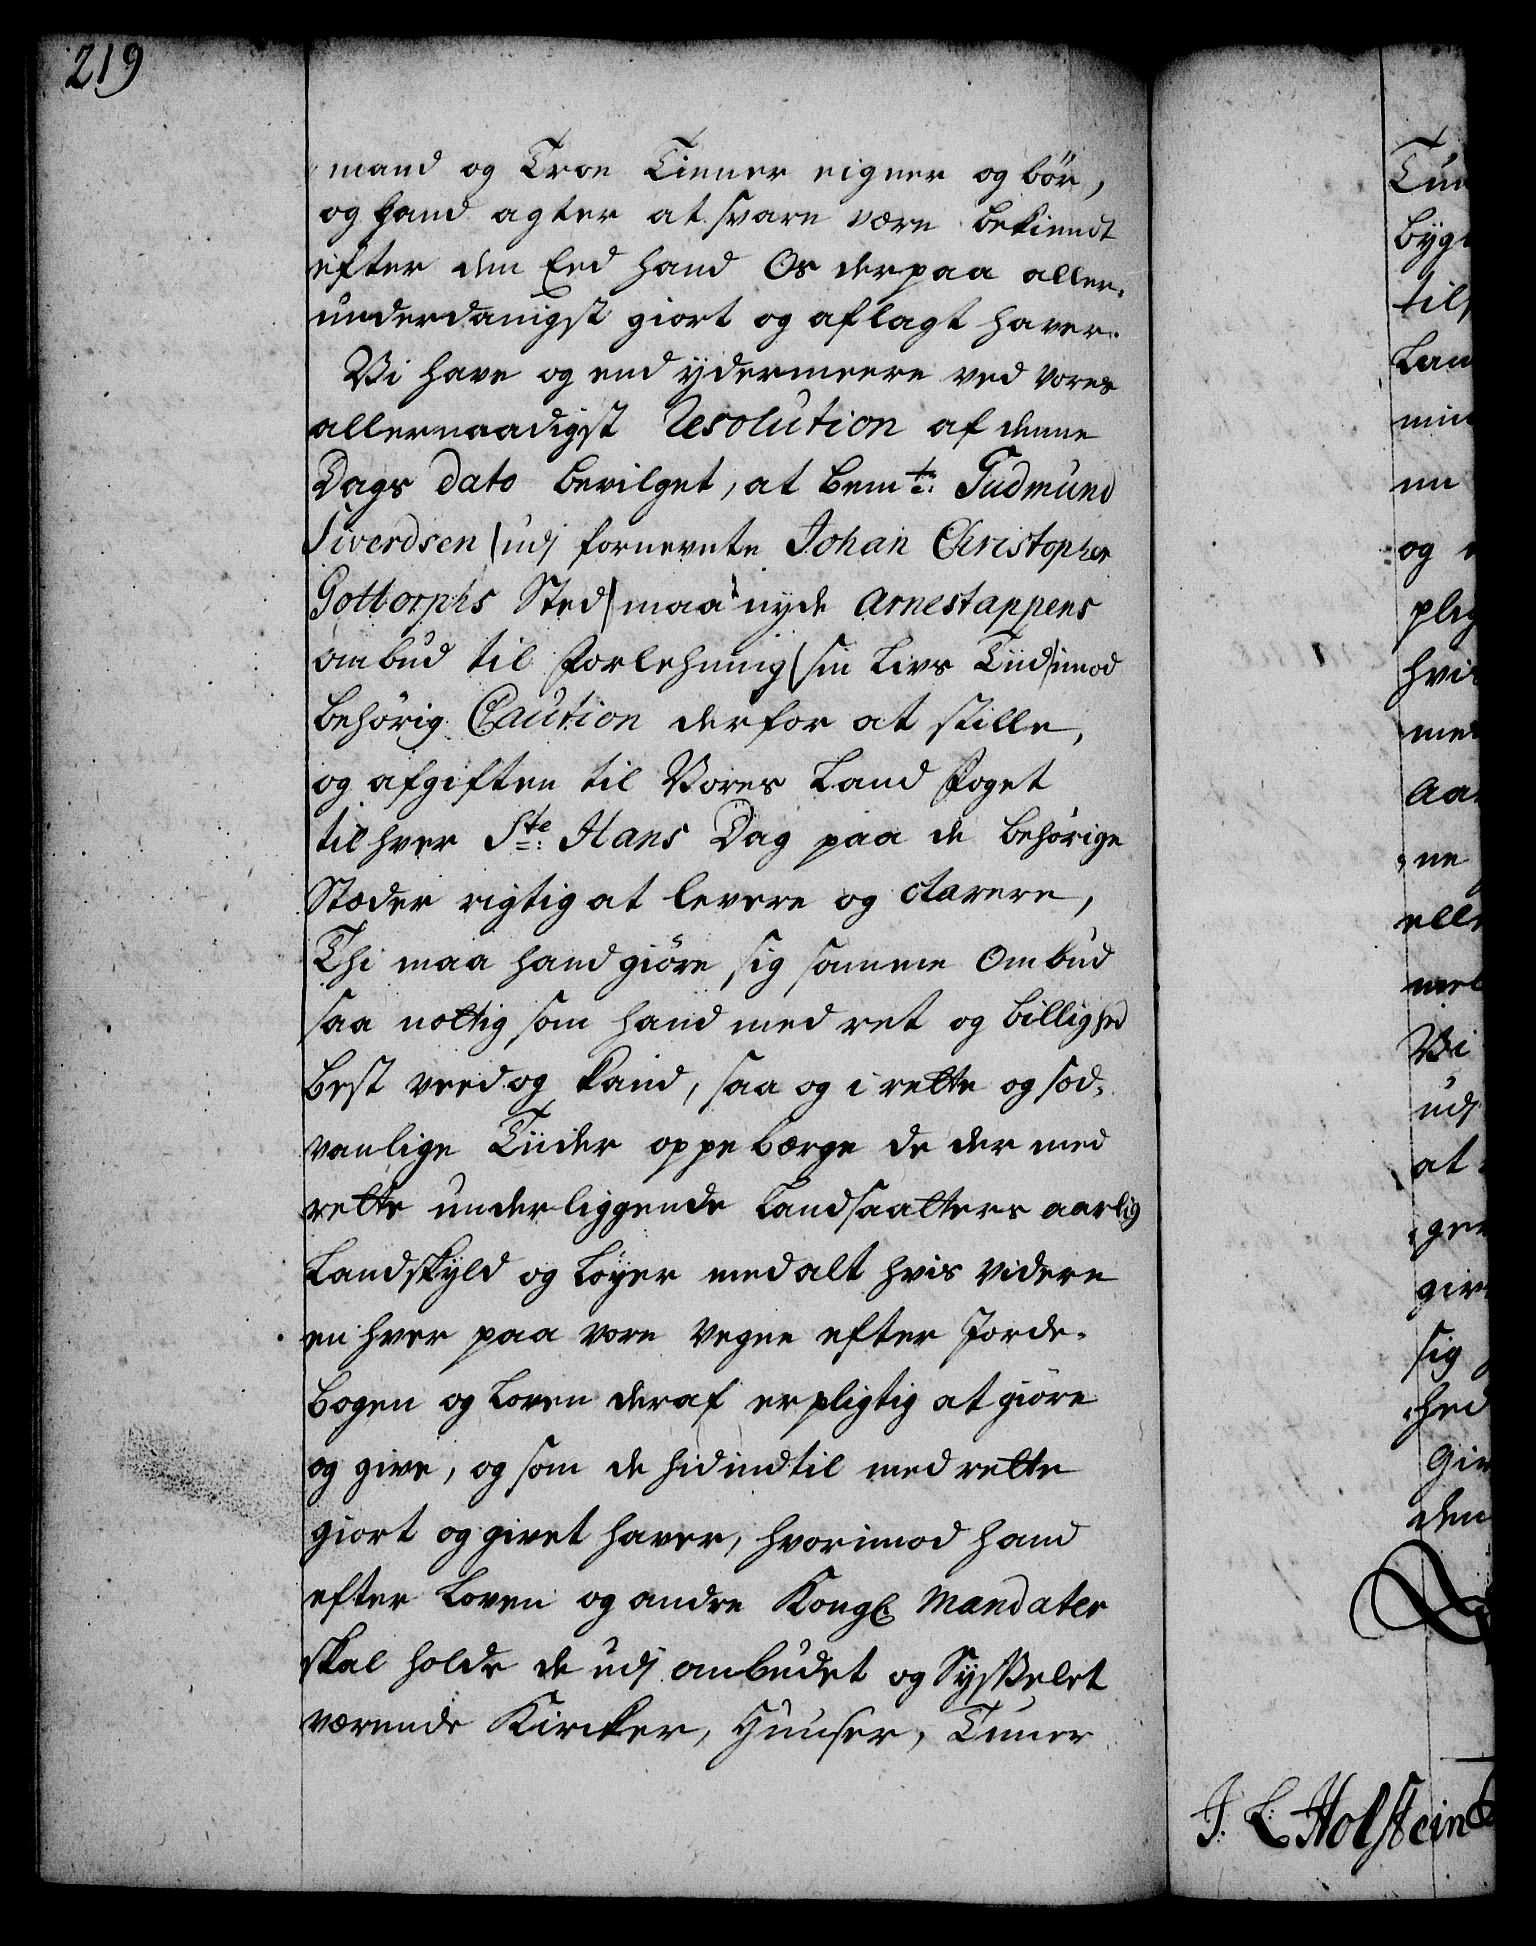 219
mand og Troe Tiener eigner og bör,
og hand agter at svare være bekiendt
efter den Eed hand Os derpaa aller-
underdanigst giort og aflagt haver.
Vi have og end ydermeere ved Vores
allernaadigst Resolution af denne
Dags dato bevilget, at bemte: Gudmund
Siverdsen |udj fornevnte Johan Christopher
Gottorphs Sted| maa nyde Arnestappens
ombud til Forlehning |sin Livs Tiid| imod
behörig Caution derfor at stille,
og afgiften til Vores Land Foget
til hver Ste: Hans Dag paa de behörige
Stæder rigtig at levere og clarere,
Thi maa hand giöre sig samme Ombud
saa nöttig som hand med ret og billighed
best veed og kand, saa og i rette og sæd-
vanlige Tiider oppebærge de der med
rette underliggende Landsaatters aarlig
Landskyld og Löyer med alt hvis videre
en hver paa vore Vegne efter Jorde-
bogen og Loven deraf er pligtig at giöre
og give, og som de hidindtil med rette
giort og givet haver, hvorimod hand
efter Loven og andre Kongl Mandater
skal holde de udj ombudet og Sysselet
værende Kircker, Huuser, Tuner
Tun
byg
til
Lan
min
nu
og
plig
hvi
med
Aa
ne
elle
mel
Vi
udj
at
ger
giv
sig
hed
Giv
den
J. L. Holstein